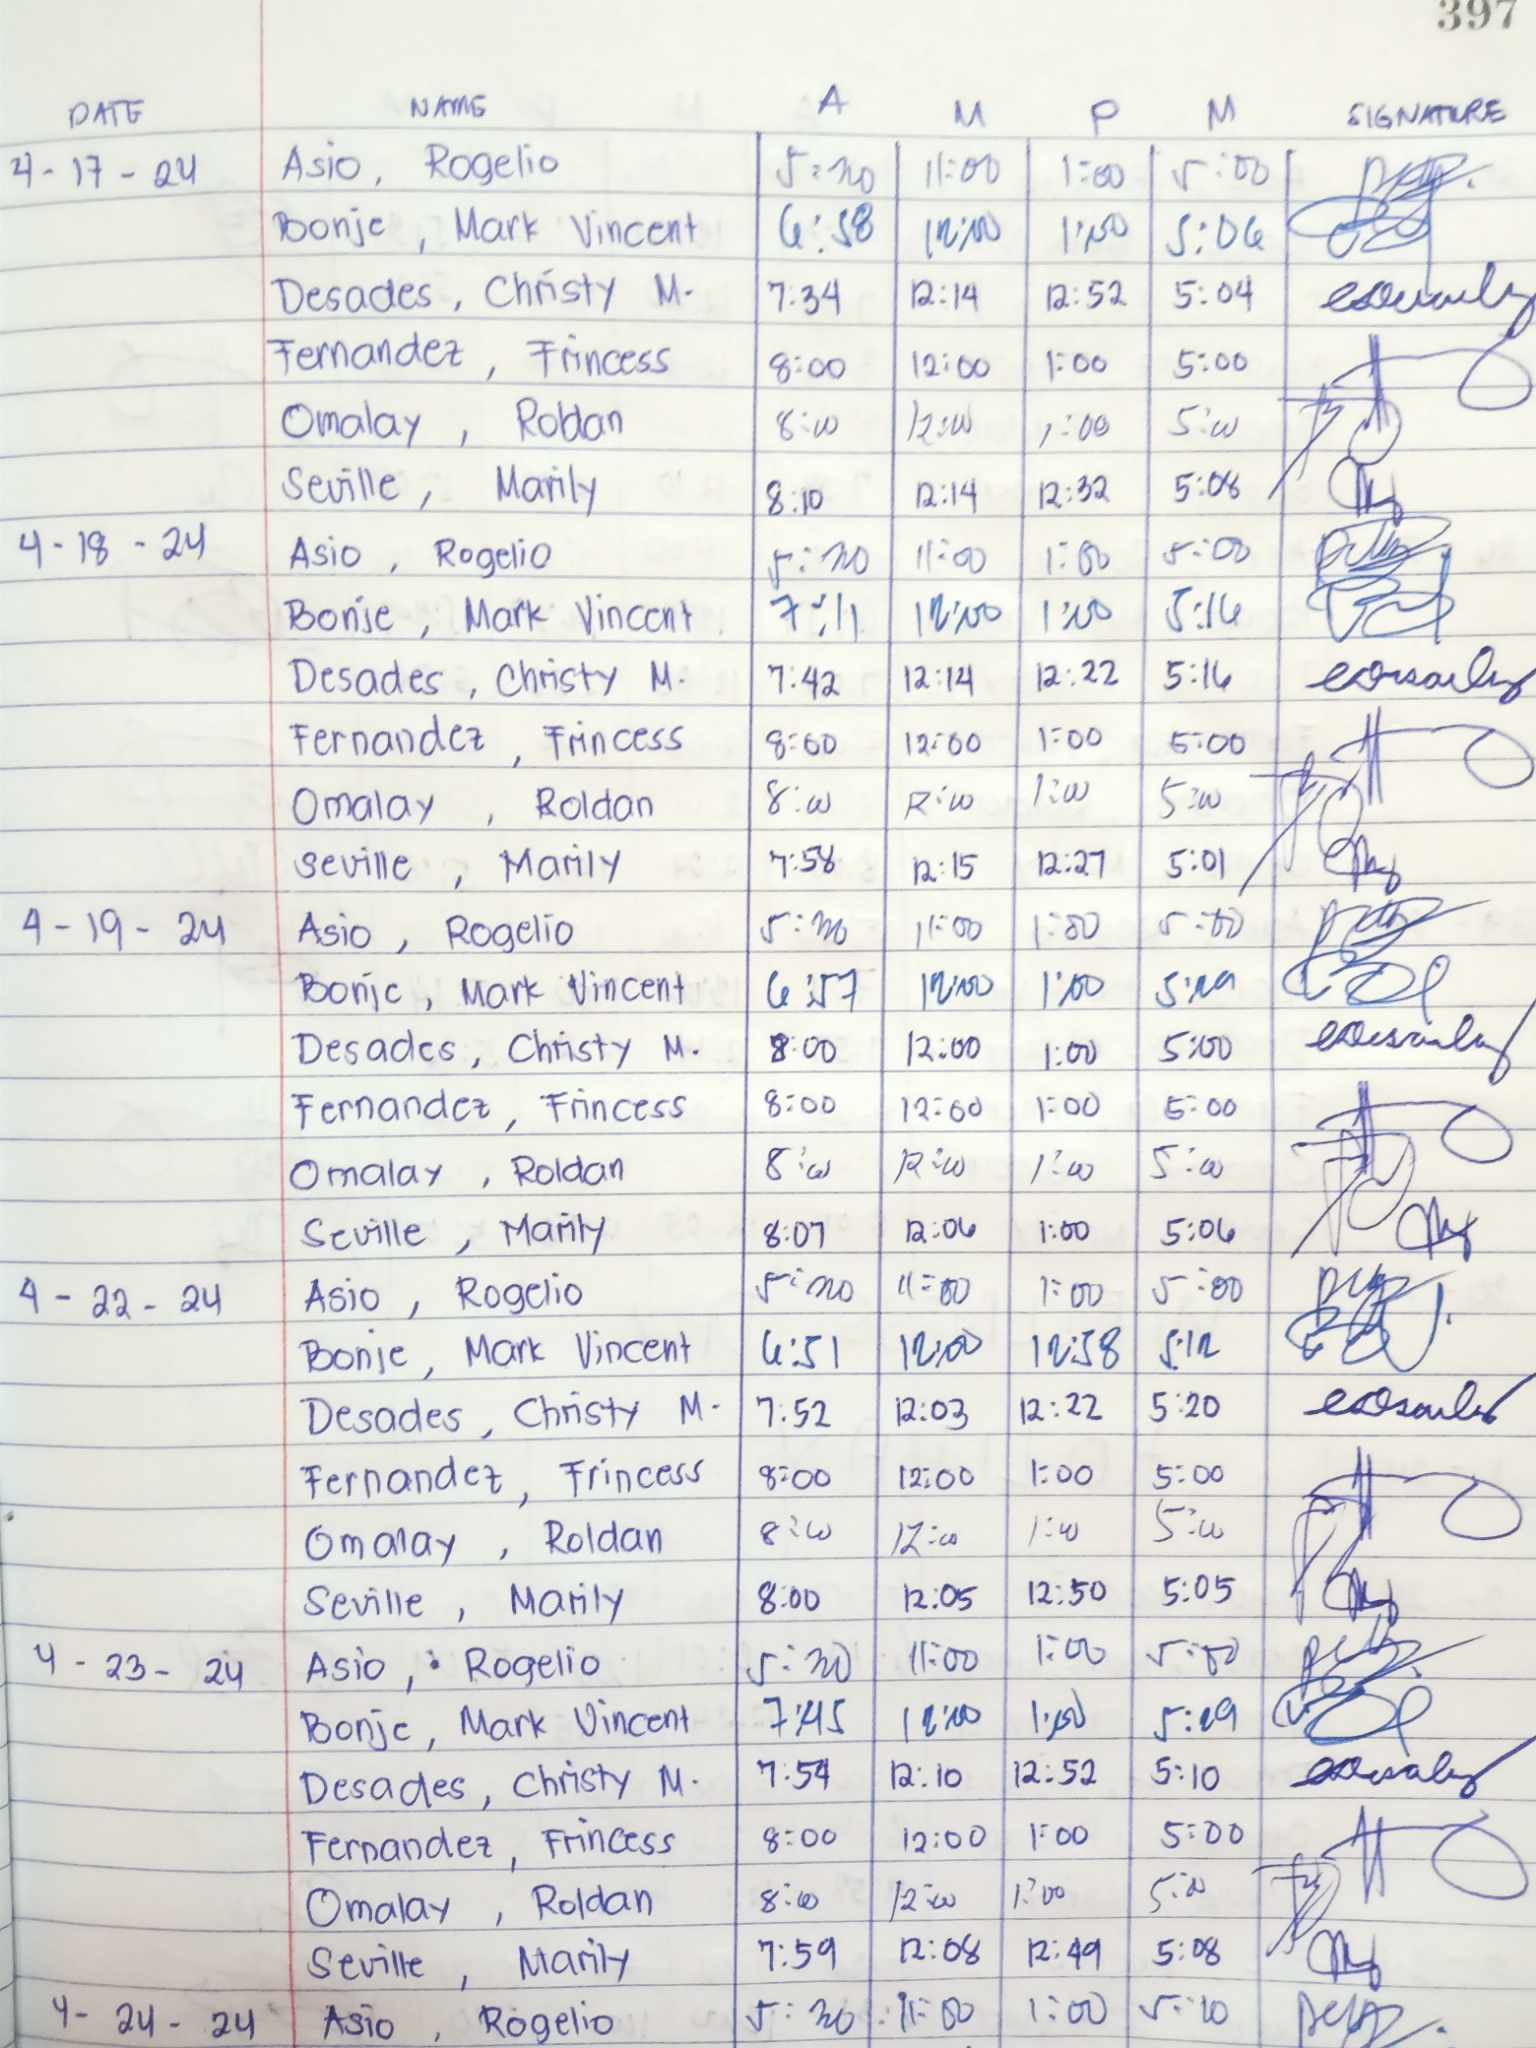 397
DATE NAME A M P M SIGNATURE
4-17-24 Asio, Rogelio 5:30 11:00 1:00 5:00
Bonje, Mark Vincent 6:58 12:00 1:00 5:06
Desades, Christy M. 7:34 12:14 12:52 5:04
Fernandez, Frincess 8:00 12:00 1:00 5:00
Omalay, Roldan 8:00 12:00 1:00 5:00
Seville, Marily 8:10 12:14 12:32 5:08
4-18-24 Asio, Rogelio 5:30 11:00 1:00 5:00
Bonje, Mark Vincent 7:11 12:00 1:00 5:16
Desades, Christy M. 7:42 12:14 12:22 5:16
Fernandez, Frincess 8:00 12:00 1:00 5:00
Omalay, Roldan 8:00 12:00 1:00 5:00
Seville, Marily 7:58 12:15 12:27 5:01
4-19-24 Asio, Rogelio 5:30 11:00 1:00 5:00
Bonje, Mark Vincent 6:57 12:00 1:00 5:29
Desades, Christy M. 8:00 12:00 1:00 5:00
Fernandez, Frincess 8:00 12:00 1:00 5:00
Omalay, Roldan 8:00 12:00 1:00 5:00
Seville, Marily 8:07 12:06 1:00 5:06
4-22-24 Asio, Rogelio 5:30 11:00 1:00 5:00
Bonje, Mark Vincent 6:51 12:00 12:58 5:12
Desades, Christy M. 7:52 12:03 12:22 5:20
Fernandez, Frincess 8:00 12:00 1:00 5:00
Omalay, Roldan 8:00 12:00 1:00 5:00
Seville, Marily 8:00 12:05 12:50 5:05
4-23-24 Asio, Rogelio 5:30 11:00 1:00 5:00
Bonje, Mark Vincent 7:45 12:00 1:00 5:29
Desades, Christy M. 7:54 12:10 12:52 5:10
Fernandez, Frincess 8:00 12:00 1:00 5:00
Omalay, Roldan 8:00 12:00 1:00 5:00
Seville, Marily 7:59 12:08 12:49 5:08
4-24-24 Asio, Rogelio 5:30 11:00 1:00 5:10